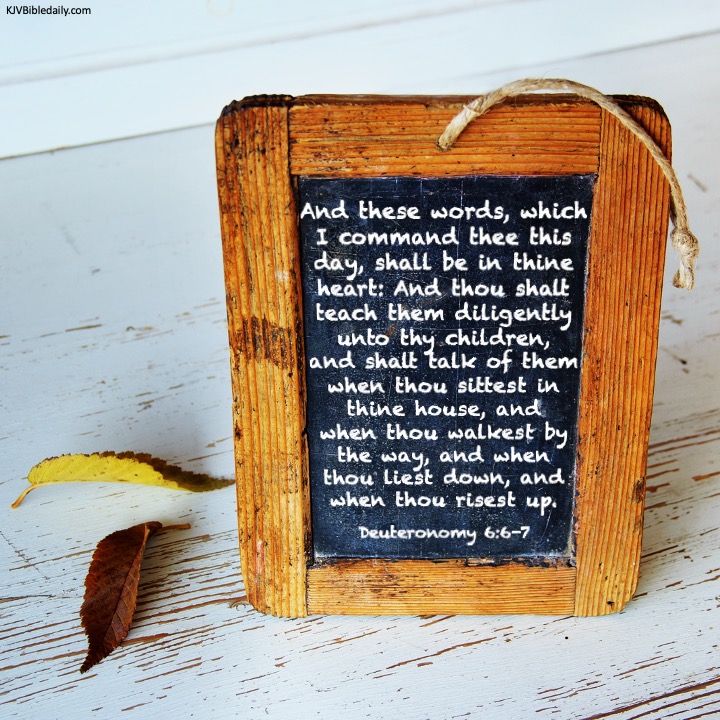 KJVBibledaily.com
And these words, which
I command thee this
day, shall be in thine
heart: And thou shalt
teach them diligently
unto thy children,
and shalt talk of them
when thou sittest in
thine house, and
when thou walkest by
the way, and when
thou liest down, and
when thou risest up.
Deuteronomy 6:6-7